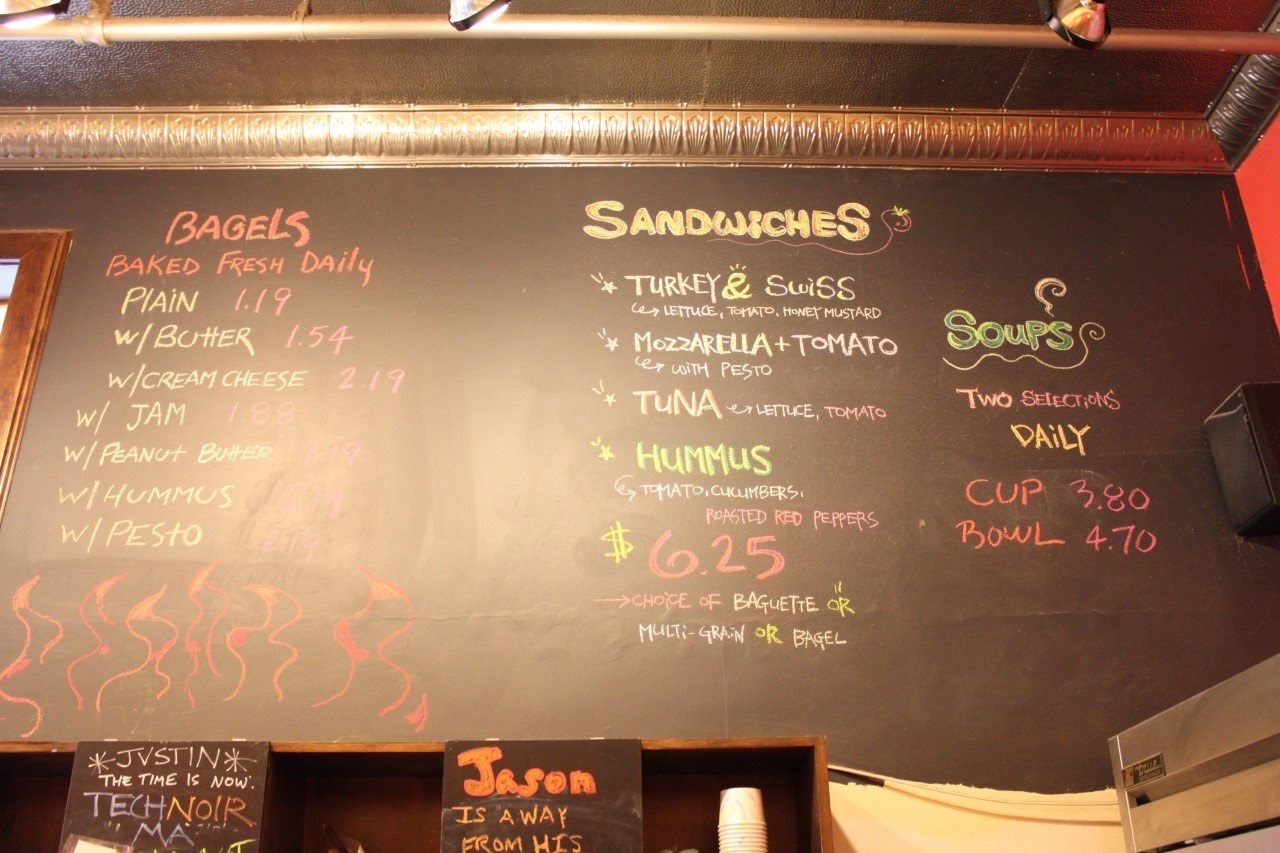 BAGELS
BAKED FRESH DAILY
PLAIN 1.19
W/BUTTER 1.54
W/CREAM CHEESE 2.19
W/ JAM 1.88
W/PEANUT BUTTER
W/HUMMUS
W/PESTO
SANDWICHES
TURKEY & SWISS
LETTUCE, TOMATO, HONEY MUSTARD
MOZZARELLA + TOMATO
WITH PESTO
TUNA LETTUCE, TOMATO
HUMMUS
TOMATO, CUCUMBERS,
ROASTED RED PEPPERS
$ 6.25
CHOICE OF BAGUETTE OR
MULTI-GRAIN OR BAGEL
SOUPS
TWO SELECTIONS
DAILY
CUP 3.80
BOWL 4.70
JVSTIN
THE TIME IS NOW.
TECHNOIR
MA
Jason
IS AWAY
FROM HIS